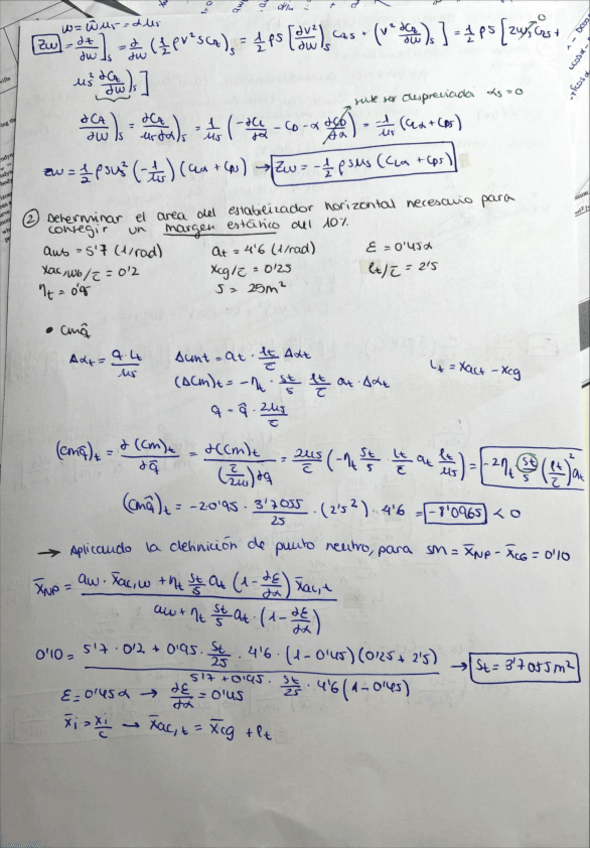 w = w̄ us = α us
Zw = ∂Z/∂w]s = ∂/∂w (1/2 ρV²SCz)s = 1/2 ρS [∂V²/∂w)s Czs + (V² ∂Cz/∂w)s] = 1/2 ρS [2ws Czs + 0
us² ∂Cz/∂w)s]
∂Cz/∂w)s = ∂Cz/us∂α)s = 1/us (-∂CL/∂α - CD - α ∂CD/∂α) = -1/us (CLα + CDs)
despreciada αs = 0
Zw = 1/2 ρSus² (-1/us) (CLα + CDs) → Zw = -1/2 ρSus (CLα + CDs)
② Determinar el area del estabilizador horizontal necesario para
conseguir un margen estático del 10%
awb = 5'7 (1/rad) at = 4'6 (1/rad) ε = 0'45α
xac,wb/c̄ = 0'2 xcg/c̄ = 0'25 lt/c̄ = 2'5
ηt = 0'95 S = 25m²
• Cmq̂
Δαt = q·lt/us ΔCmt = at · lt/c̄ Δαt lt = xact - xcg
(ΔCm)t = -ηt · St/S lt/c̄ at · Δαt
q = q̂ · 2us/c̄
(Cmq̂)t = ∂(Cm)t/∂q̂ = ∂(Cm)t/(c̄/2us)∂q = 2us/c̄ (-ηt St/S lt/c̄ at lt/us) = -2ηt St/S (lt/c̄)² at
(Cmq̂)t = -2·0'95 · 3'7055/25 · (2'5²) · 4'6 = -8'0965 < 0
→ Aplicando la definición de punto neutro, para SM = x̄NP - x̄CG = 0'10
x̄NP = aw · x̄ac,w + ηt St/S at (1 - ∂ε/∂α) x̄ac,t / aw + ηt St/S at · (1 - ∂ε/∂α)
0'10 = 5'7 · 0'2 + 0'95 · St/25 · 4'6 · (1 - 0'45) (0'25 + 2'5) / 5'7 + 0'95 · St/25 · 4'6 (1 - 0'45) → St = 3'7055 m²
ε = 0'45α → ∂ε/∂α = 0'45
x̄i = xi/c → x̄ac,t = x̄cg + lt